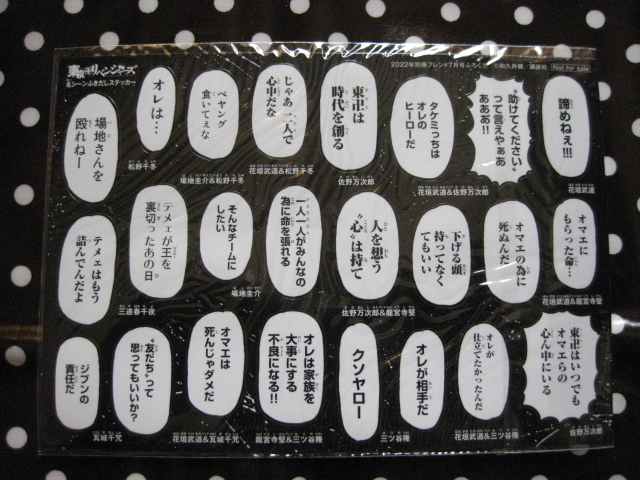 東京卍リベンジャーズ
名シーンふきだしステッカー
2022年別冊フレンド7月号ふろく
©和久井健/講談社
Not for sale
諦めねぇ!!!
花垣武道
"助けてください"
って言えやぁあ
あああ!!
タケミっちは
オレの
ヒーローだ
花垣武道&佐野万次郎
東卍は
時代を創る
佐野万次郎
じゃあ 二人で
心中だな
花垣武道&松野千冬
ペヤング
食いてぇな
場地圭介&松野千冬
オレは…
松野千冬
場地さんを
殴れねー
オマエに
もらった命…
花垣武道&龍宮寺堅
オマエの為に
死ぬんだ
下げる頭
持ってなく
てもいい
人を想う
"心"は持て
佐野万次郎&龍宮寺堅
一人一人がみんなの
為に命を張れる
そんなチームに
したい
場地圭介
テメェが王を
裏切ったあの日
三途春千夜
テメェはもう
詰んでんだよ
東卍はいつでも
オマエらの
心ん中にいる
佐野万次郎
オレが
仕立てたかったんだ
オレが相手だ
花垣武道&三ツ谷隆
クソヤロー
三ツ谷隆
オレは家族を
大事にする
不良になる!!
龍宮寺堅&三ツ谷隆
オマエは
死んじゃダメだ
花垣武道&瓦城千咒
"友だち"って
思ってもいいか?
瓦城千咒
ジブンの
責任だ